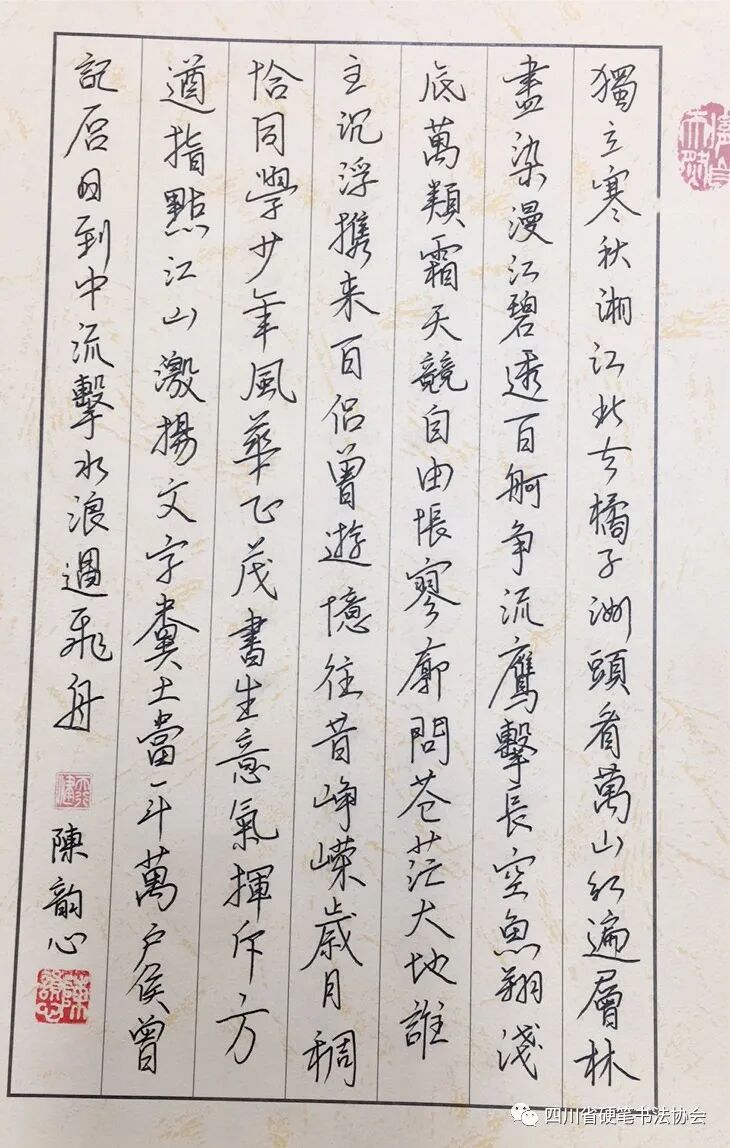 獨立寒秋湘江北去橘子洲頭看萬山紅遍層林
盡染漫江碧透百舸争流鷹擊長空魚翔淺
底萬類霜天競自由悵寥廓問蒼茫大地誰
主沉浮携来百侣曾遊憶往昔峥嶸歲月稠
恰同學少年風華正茂書生意氣揮斥方
遒指點江山激揚文字糞土當年萬户侯曾
記否曰到中流擊水浪遏飛舟
陳韵心
四川省硬笔书法协会